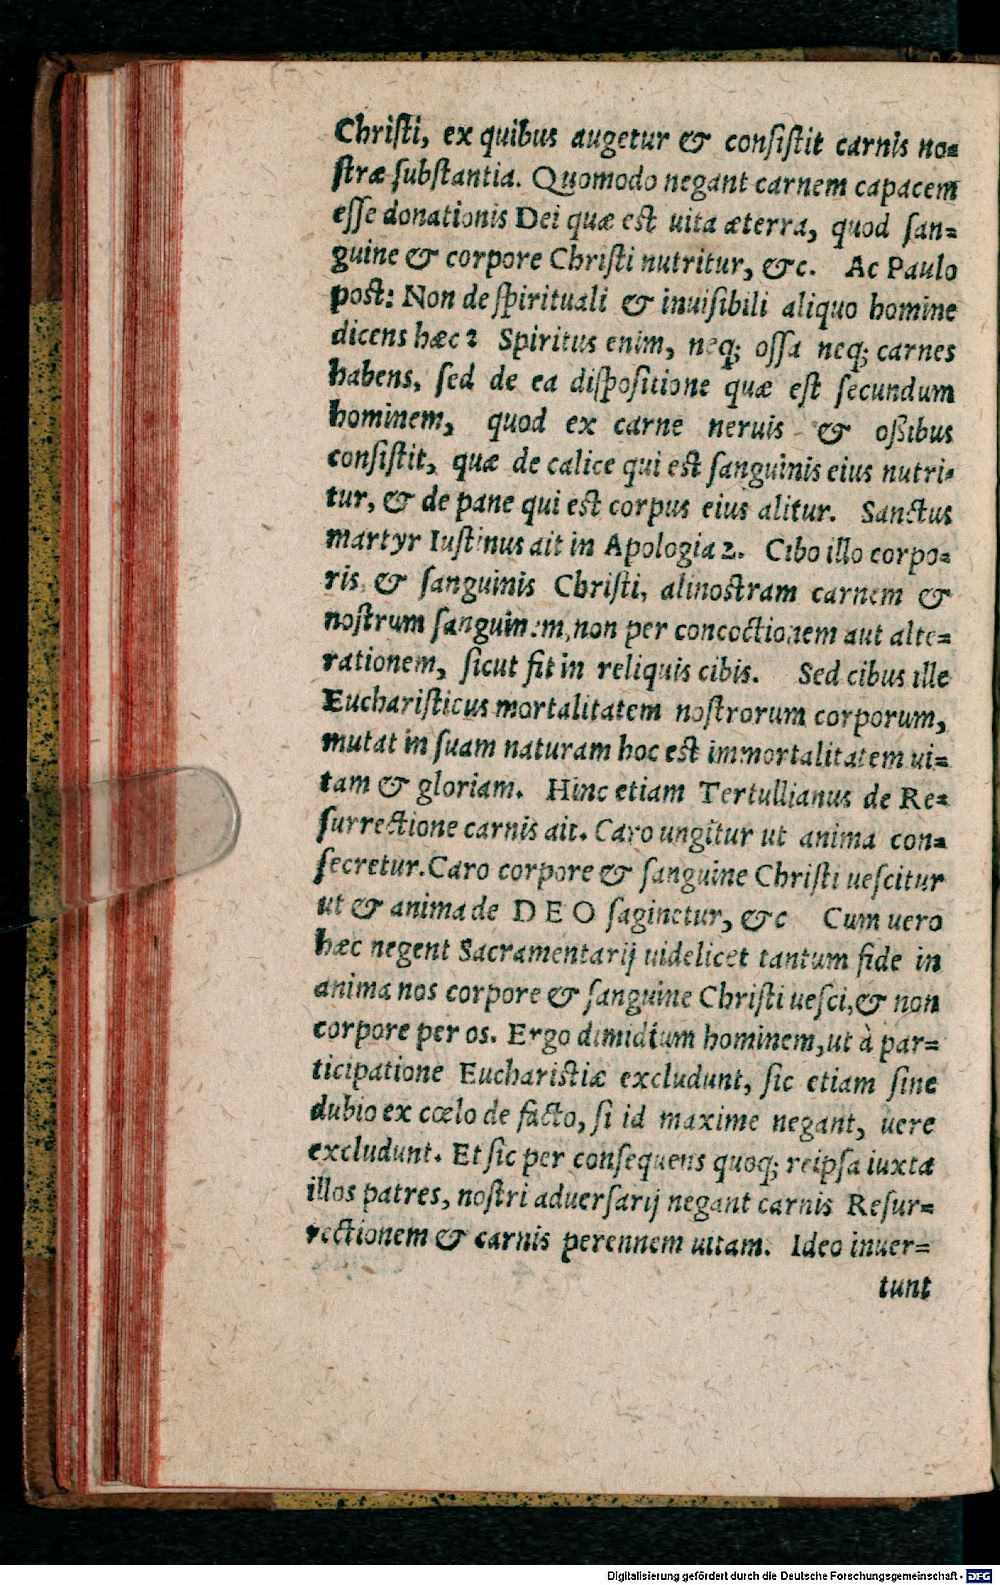 Christi, ex quibus augetur & consistit carnis no=
stræ substantia. Quomodo negant carnem capacem
esse donationis Dei quæ est uita æterra, quod san=
guine & corpore Christi nutritur, &c. Ac Paulo
post: Non de spirituali & inuisibili aliquo homine
dicens hæc? Spiritus enim, neq; ossa neq; carnes
habens, sed de ea dispositione quæ est secundum
hominem, quod ex carne neruis & oßibus
consistit, quæ de calice qui est sanguinis eius nutri=
tur, & de pane qui est corpus eius alitur. Sanctus
martyr Iustinus ait in Apologia 2. Cibo illo corpo=
ris & sanguinis Christi, ali nostram carnem &
nostrum sanguinem, non per concoctionem aut alte=
rationem, sicut fit in reliquis cibis. Sed cibus ille
Eucharisticus mortalitatem nostrorum corporum,
mutat in suam naturam hoc est immortalitatem ui=
tam & gloriam. Hinc etiam Tertullianus de Re=
surrectione carnis ait. Caro ungitur ut anima con=
secretur. Caro corpore & sanguine Christi uescitur
ut & anima de DEO saginetur, &c Cum uero
hæc negent Sacramentarij uidelicet tantum fide in
anima nos corpore & sanguine Christi uesci, & non
corpore per os. Ergo dimidium hominem, ut à par=
ticipatione Eucharistiæ excludunt, sic etiam sine
dubio ex cœlo de facto, si id maxime negant, uere
excludunt. Et sic per consequens quoq; reipsa iuxta
illos patres, nostri aduersarij negant carnis Resur=
rectionem & carnis perennem uitam. Ideo inuer=
tunt
Digitalisierung gefördert durch die Deutsche Forschungsgemeinschaft - DFG